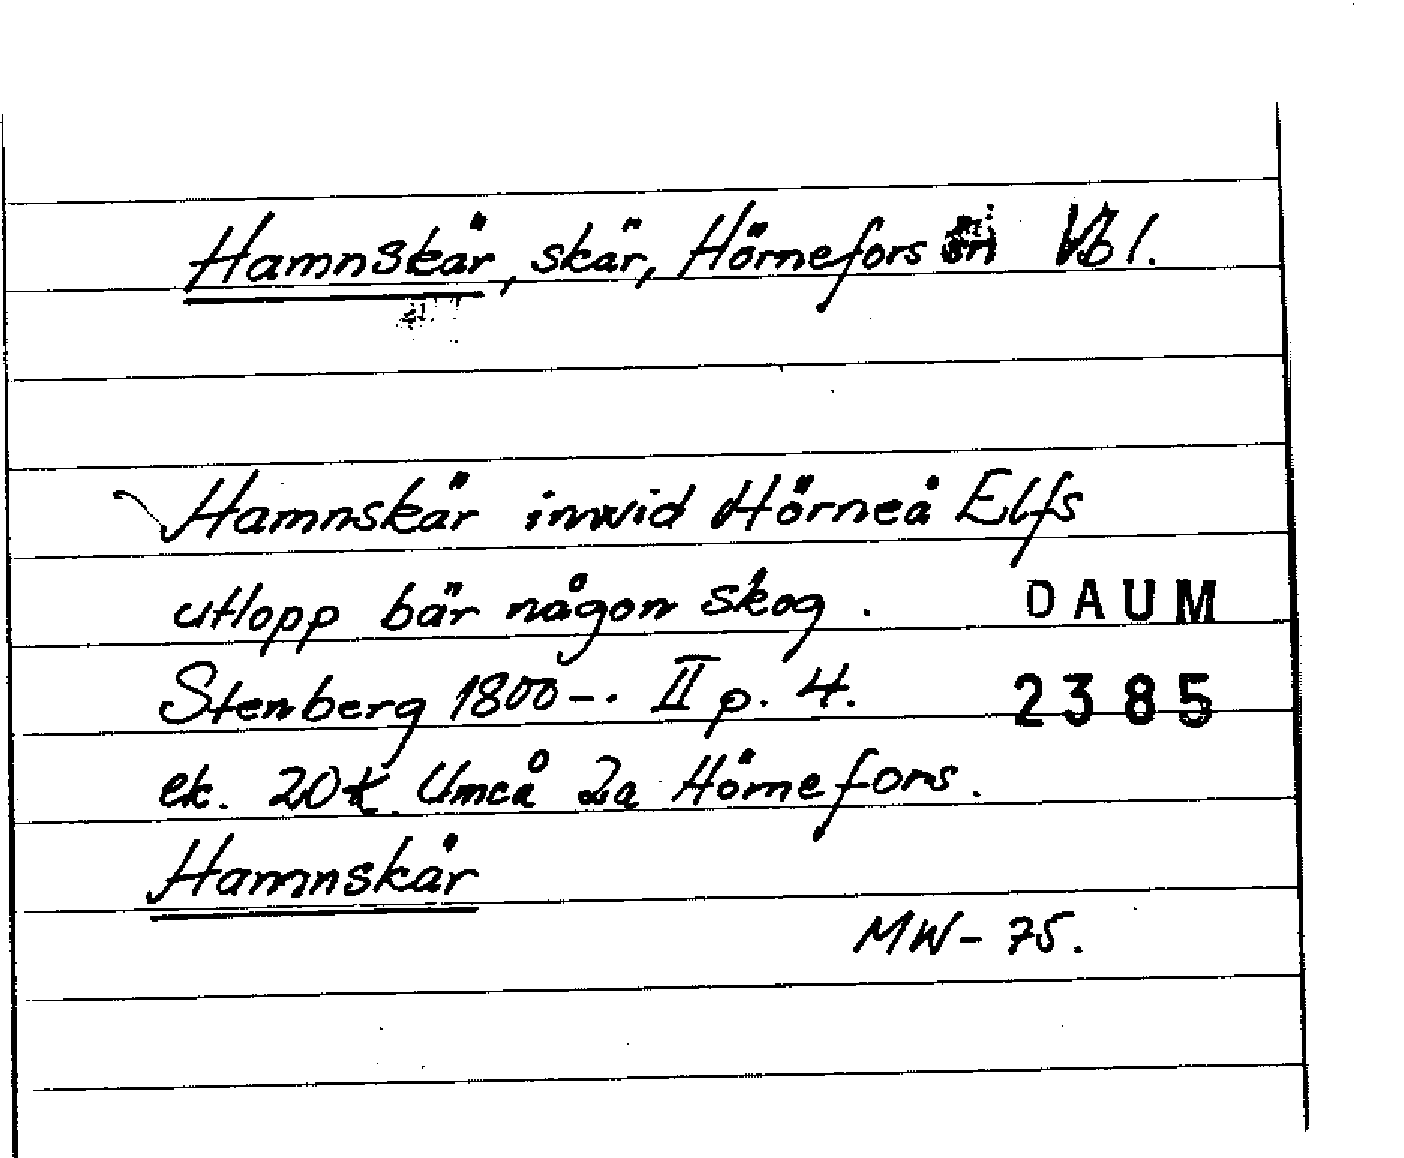 Hamnskär, skär, Hörnefors sn Vbl.
Hamnskär inwid Hörneå Elfs
utlopp bär någon skog. DAUM
Stenberg 1800-. II p. 4. 2385
ek. 20K Umeå 2a Hörnefors.
Hamnskär
MW-75.